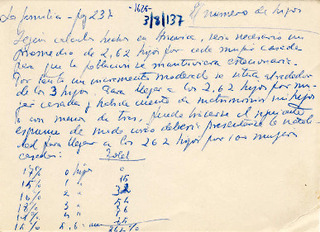 La familia - pg 237
-1625-
3/8/137
El numero de hijos
Según calculos hechos en America, sería necesario un
promedio de 2,62 hijos por cada mujer casada
para que la poblacion se mantuviera estacionaria.
Por tanto un incremento moderado se situa alrededor
de los 3 hijos. Para llegar a los 2,62 hijos por mu-
jer casada y habida cuenta de matrimonios sin hijos
o con menos de tres, puede hacerse el siguiente
de modo como debería presentarse la natali-
dad para llegar a los 262 hijos por 100 mujeres
casadas:
Total
17% 0 hijos 0
15% 1 " 15
16% 2 " 32
18% 3 " 54
18% 4 "
16% 5, 6